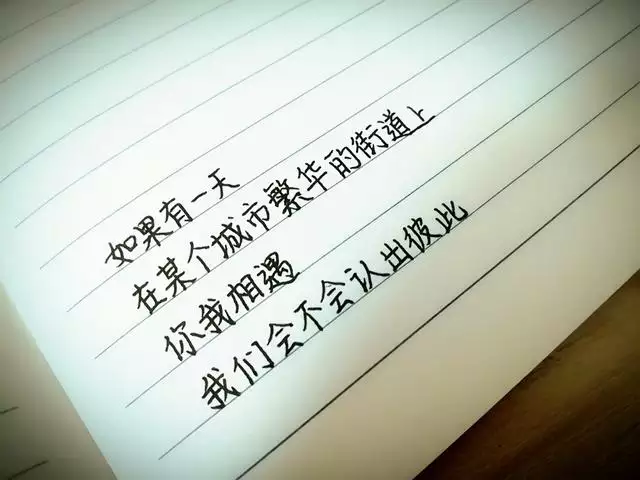 如果有一天
在某个城市繁华的街道上
你我相遇
我们会不会认出彼此